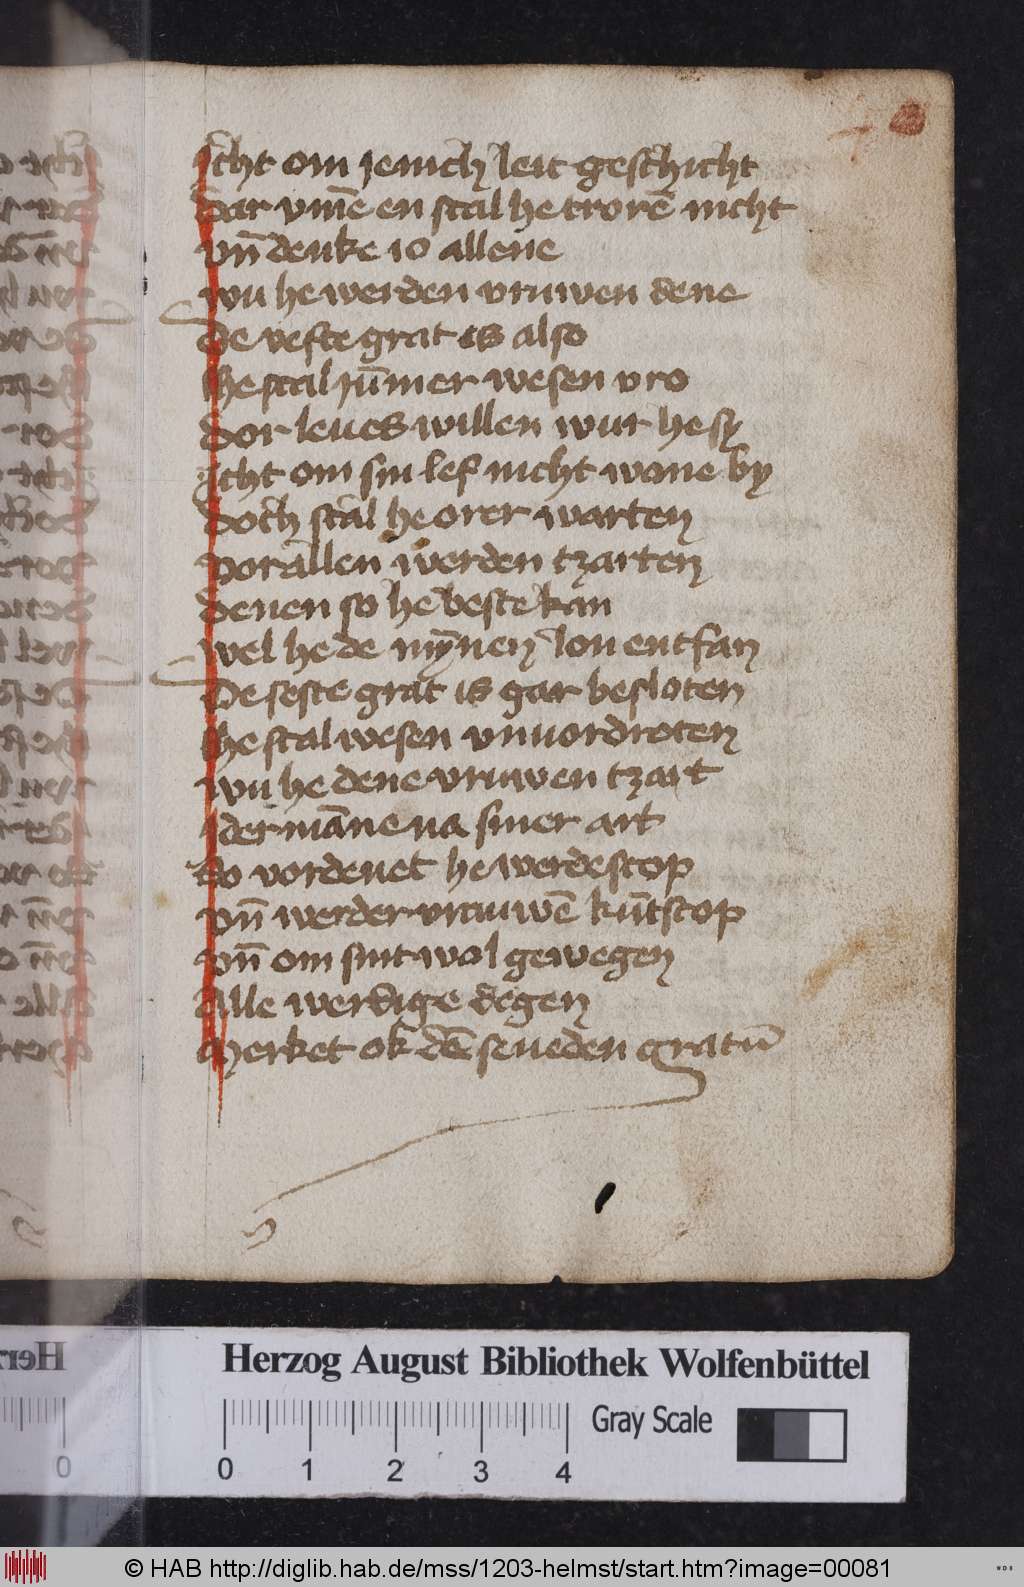 Icht om jenich leit geschicht
Dar vm̄e en scal he trorē nicht
vn̄ denke io allene
wu he werden vruwen dene
De vefte grat is also
He scal jūmer wesen vro
Dor leues willen wur he sy
Icht om sin lef nicht wone by
Doch scal he orer warten
Vor allen werden tzarten
Denen so he beste kan
Wel he de mȳnen lon entfan
De seste grat is gar besloten
He scal wesen vnuordroten
wu he dene vruwen tzart
Idermāne na siner art
So vordenet he werdescop
vn̄ werder vrauwē kūtscop
vn̄ om sint wol gewegen
Alle werdige degen
Merket ok dē seueden gratū
Herzog August Bibliothek Wolfenbüttel
Gray Scale
0 1 2 3 4
© HAB http://diglib.hab.de/mss/1203-helmst/start.htm?image=00081